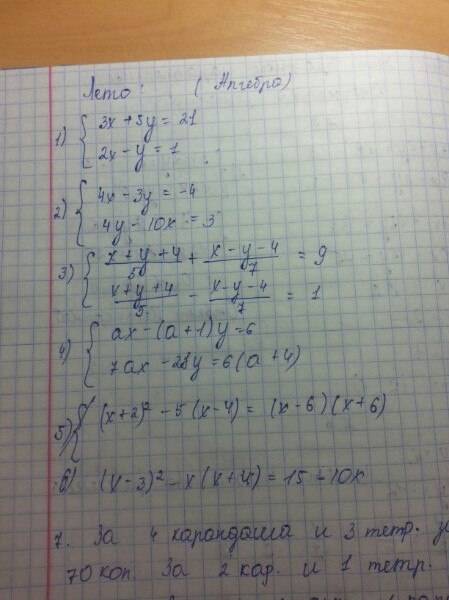 Лето: (Алгебра)
1) { 3x + 5y = 21
2x - y = 1
2) { 4x - 3y = -4
4y - 10x = 3
3) { (x + y + 4)/5 + (x - y - 4)/7 = 9
(x + y + 4)/5 - (x - y - 4)/7 = 1
4) { ax - (a + 1)y = 6
7ax - 28y = 6(a + 4)
5) { (x + 2)² - 5(x - 4) = (x - 6)(x + 6)
6) (x - 3)² - x(x + 4) = 15 - 10x
7. За 4 карандаша и 3 тетр.
70 коп. За 2 кар. и 1 тетр.